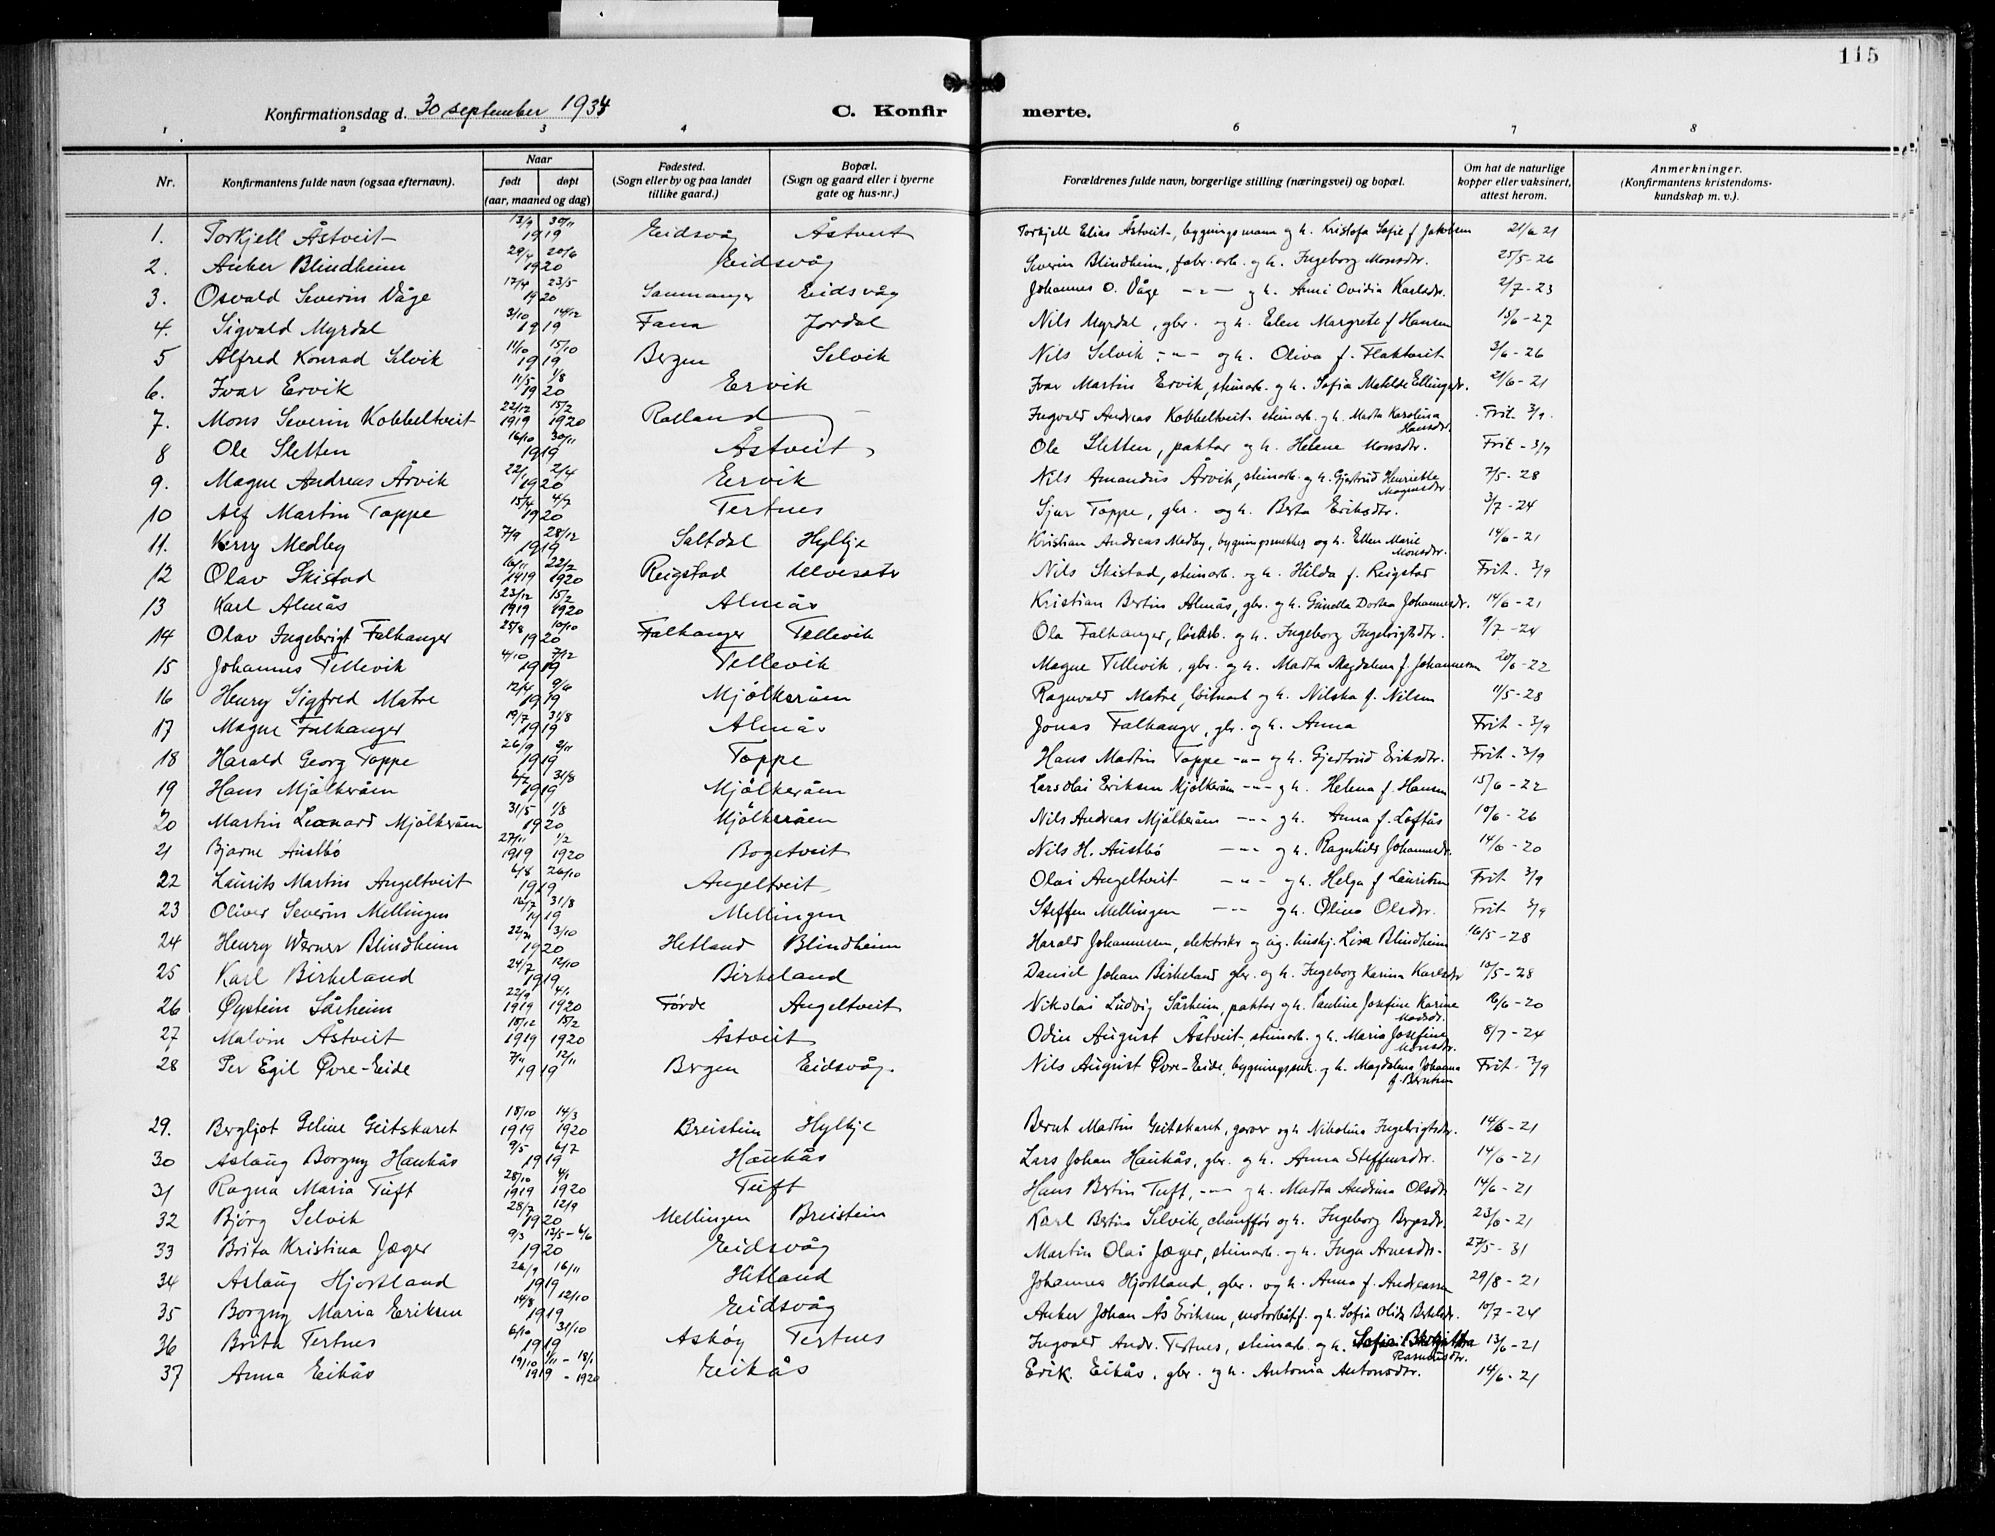 115
Konfirmationsdag d. 30 september 1934 C. Konfirmerte.
1 2 3 4 6 7 8
Nr. Konfirmantens fulde navn (ogsaa efternavn). Naar født døpt (aar, maaned og dag) Fødested. (Sogn eller by og paa landet tillike gaard.) Bopæl. (Sogn og gaard eller i byerne gate og hus-nr.) Forældrenes fulde navn, borgerlige stilling (næringsvei) og bopæl. Om hat de naturlige kopper eller vaksinert, attest herom. Anmerkninger. (Konfirmantens kristendomskundskap m. v.).
1. Torkjell Åstveit 13/9 30/11 1919 Eidsvåg Åstveit Torkjell Elias Åstveit, bygningsmann og h. Kristofa Sofie f. Jakobsen 21/6 21
2. Anker Blindheim 29/4 20/6 1920 Eidsvåg Severin Blindheim, fabr. arb. og h. Ingeborg Monsdr. 25/5-26
3. Osvald Severin Våge 17/4 23/5 1920 Samnanger Eidsvåg Johannes O. Våge -"- og h. Anni Ovidia Karlsdr. 2/7-23
4. Sigvald Myrdal 3/10 14/12 1919 Fana Jordal Nils Myrdal, gbr. og h. Elen Margrete f. Hansen 15/6-27
5 Alfred Konrad Selvik 11/10 15/10 1919 Bergen Selvik Nils Selvik -"- og h. Oliva f. Flaktveit 3/6-26
6. Ivar Ervik 11/5 1/8 1920 Ervik Ivar Martin Ervik, steinarb. og h. Sofia Matilde Ellingsdr. 21/6-21
7. Mons Severin Kobbeltveit 22/12 1919 15/2 1920 Rolland - Ingvald Andreas Kobbeltveit steinarb. og h. Marta Karolina Hansdr. Frit 3/9.
8 Ole Sletten 16/10 30/11 1919 Åstveit Ole Sletten, paktar og h. Helene Monsdr. Frit - 3/9
9. Magne Andreas Årvik 22/1 2/4 1920 Ervik Nils Amandus Årvik, steinarb. og h. Gjertrud Henriette Magnusdr. 7/5-28
10 Alf Martin Toppe 15/4 4/7 1920 Tertnes Sjur Toppe, gbr. og h. Berta Eriksdr. 3/7-24
11. Kerry Medby 7/9 28/12 1919 Saltdal Hylkje Kristian Andreas Medby, bygningssnekker og h. Ellen Marie Monsdr. 14/6-21
12 Olav Skistad 16/11 1919 22/2 1920 Reigstad Ulvesetr Nils Skistad, steinarb. og h. Hilda f. Reigstad Frit. 3/9
13 Karl Almås 23/12 1919 15/2 1920 Almås Kristian Bertin Almås, gbr. og h. Gunella Dortea Johannesdr. 14/6-21
14 Olav Ingebrigt Falkanger 25/8 10/10 1920 Falkanger Tellevik Ola Falkanger, løsarb. og h. Ingeborg Ingebrigtsdr. 9/7-24
15 Johannes Tellevik 4/10 7/12 1919 Tellevik Magne Tellevik, gbr. og h. Marta Magdalena f. Johannesen 20/6-22
16 Henry Sigfred Matre 12/4 9/6 1919 Mjølkeråen Ragnvald Matre, løitnant og h. Nilska f. Nilsen 11/5-28
17 Magne Falkanger 19/7 31/8 1919 Almås Jonas Falkanger, gbr. og h. Anna Frit - 3/9
18 Harald Georg Toppe 26/9 2/11 1919 Toppe Hans Martin Toppe -"- og h. Gjertrud Eriksdr. Frit - 3/9
19 Hans Mjølkeråen 6/7 31/8 1919 Mjølkeråen Lars Olai Eriksen Mjølkeråen -"- og h. Helena f. Hansen 15/6-22
20 Martin Leonard Mjølkeråen 31/5 1/8 1920 Mjølkeråen Nils Andreas Mjølkeråen -"- og h. Anna f. Loftås 10/6-26
21 Bjarne Austbø 27/11 1919 1/2 1920 Bogetveit Nils H. Austbø -"- og h. Ragnhild Johannesdr. 14/6-20
22 Laurits Martin Angeltveit 6/8 26/10 1919 Angeltveit Olai Angeltveit -"- og h. Helga f. Lauritsen Frit 3/9
23 Oliver Severin Mellingen 16/7 31/8 1919 Mellingen Steffen Mellingen -"- og h. Olina Olsdr. Frit 3/9
24 Henry Werner Blindheim 3/10 1920 Hetland Blindheim Harald Johannesen, elektriker og eig. huskj. Lisa Blindheim 16/5-28
25 Karl Birkeland 24/7 12/10 1919 Birkeland Daniel Johan Birkeland gbr. og h. Ingeborg Karina Karlsdr 10/5-28
26 Øystein Sårheim 22/9 1919 4/1 1920 Førde Angeltveit Nikolai Ludvig Sårheim, paktar og h. Pauline Josefine Karine Madsdr. 16/6-20
27 Malvin Åstveit 18/12 1919 15/2 1920 Åstveit Odin August Åstveit, steinarb. og h. Maria Josefine Monsdr. 8/7-24
28 Per Egil Øvre-Eide 7/11 12/11 1919 Bergen Eidsvåg. Nils August Øvre-Eide, bygningssnek. og h. Magdalena Johanna f. Berntsen Frit. 3/9
29. Bergljot Geline Geitskaret 18/10 1919 14/3 1920 Breistein Hylkje Bernt Martin Geitskaret, garver og h. Nikolina Ingebrigtsdr. 14/6-21
30 Aslaug Borgny Haukås 9/5 6/7 1919 Haukås Lars Johan Haukås, gbr. og h. Anna Steffensdr. 14/6-21
31 Ragna Maria Tuft 28/10 1919 4/1 1920 Tuft Hans Bertin Tuft, -"- og h. Marta Andrina Olsdr 14/6-21
32 Bjørg Selvik 28/7 12/9 1920 Mellingen Breistein Karl Bertin Selvik, chauffør og h. Ingeborg Brynsdr. 23/6-21
33 Brita Kristina Jæger 9/3 12/5-6/6 1920 Eidsvåg Martin Olai Jæger, steinarb. og h. Inga Arnesdr. 27/5-31
34 Aslaug Hjortland 26/9 16/11 1919 Hetland Johannes Hjortland, gbr. og h. Anna f. Andreassen 29/8-21
35 Borgny Maria Eriksen 14/8 12/10 1919 Eidsvåg Anker Johan Ås Eriksen, motorbåtf. og h. Sofia Olida 10/7-24
36 Brita Tertnes 6/10 31/10 1919 Askøy Tertnes Ingvald Andr. Tertnes, steinarb. og h. Sofia Rasmusdr. 13/6-21
37 Anna Eikås 19/10 1/11 - 18/1 1919 - 1920 Eikås Erik Eikås, gbr. og h. Antonia Antonsdr. 14/6-21